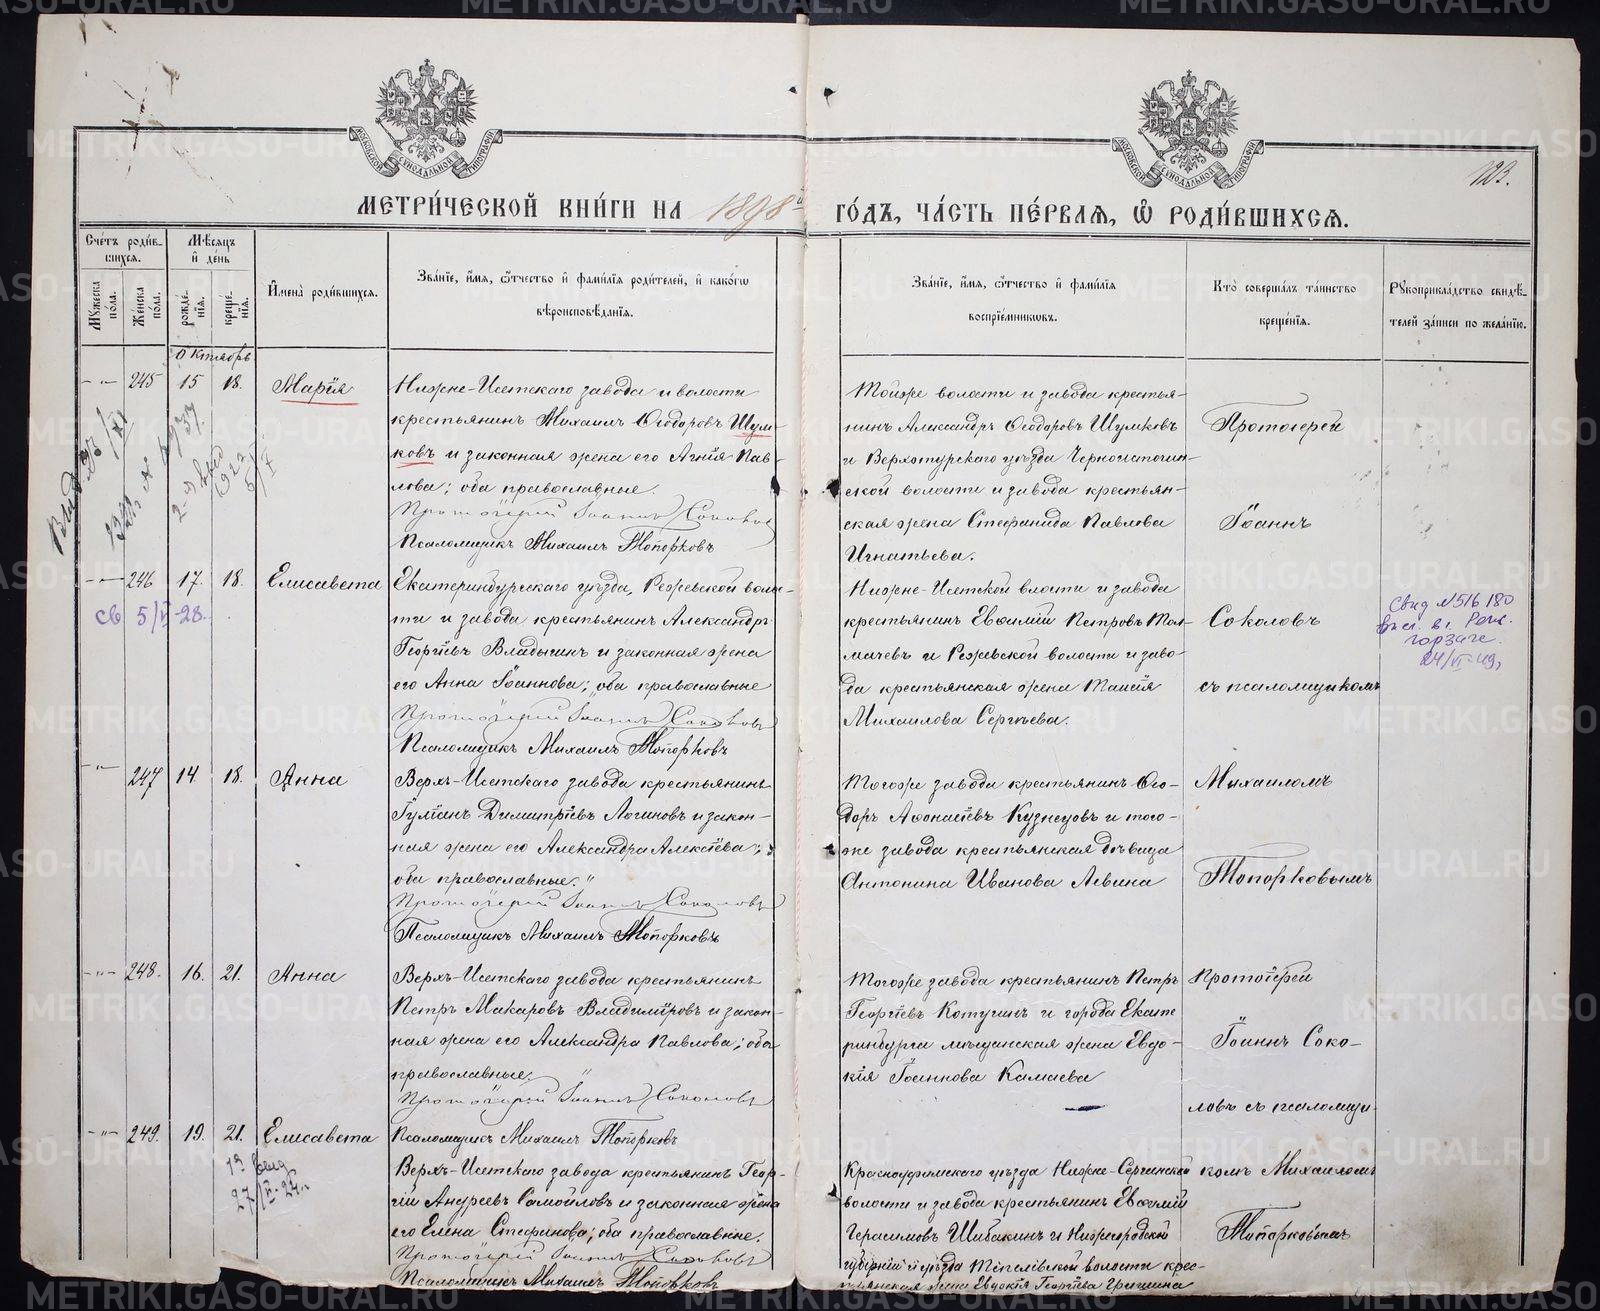 123.
МЕТРИ́ЧЕСКОЙ КНИ́ГИ НА 1898й ГО́ДЪ, ЧА́СТЬ ПЕ́РВАѦ, Ѽ РОДИ́ВШИХСѦ.
Сче́тъ роди́вшихсѧ.
Мꙋ́жеска по́ла.
Же́нска по́ла.
Мѣ́сѧцъ и де́нь
рожде́нїѧ.
креще́нїѧ.
Имена̀ роди́вшихсѧ.
Зва́нїе, и́мѧ, ѻ́тчество и фами́лїѧ роди́телей, и како́гѡ
вѣроисповѣ́данїѧ.
Зва́нїе, и́мѧ, ѻ́тчество и фами́лїѧ
воспрїе́мникѡвъ.
Кто̀ соверша́лъ та́инство
креще́нїѧ.
Рꙋкоприкла́дство свидѣ́-
телей за́писи по жела́нїю.
Октябрь
245 15 18. Марія
Нижне-Исетскаго завода и волости
крестьянинъ Михаилъ Ѳеодоровъ Шум-
ковъ и законная жена его Агнія Пав-
лова; оба православные.
Протоіерей Іоаннъ Соколовъ
Псаломщикъ Михаилъ Топорковъ
Тойже волости и завода крестья-
нинъ Александръ Ѳеодоровъ Шумковъ
и Верхотурскаго уѣзда Черноисточин-
ской волости и завода крестьян-
ская жена Стефанида Павлова
Игнатьева.
Протоіерей
Іоаннъ
246 17. 18. Елисавета
св 5/V-28.
Екатеринбургскаго уѣзда, Режевской волос-
ти и завода крестьянинъ Александръ
Георгіевъ Владыгинъ и законная жена
его Анна Іоаннова; оба православные
Протоіерей Іоаннъ Соколовъ
Псаломщикъ Михаилъ Топорковъ
Нижне-Исетской влости и завода
крестьянинъ Евѳимій Петровъ Тол-
мачевъ и Режевской волости и заво-
да крестьянская жена Таисія
Михаилова Сергѣева.
Соколовъ
съ псаломщикомъ
Свид №516180
24/VI-49,
247 14 18. Анна
Верхъ-Исетскаго завода крестьянинъ
Димитріевъ Логиновъ и закон-
ная жена его Александра Алексіева;
оба православные.
Протоіерей Іоаннъ Соколовъ
Псаломщикъ Михаилъ Топорковъ
Тогоже завода крестьянинъ Ѳео-
доръ Аѳонасіевъ Кузнецовъ и того-
же завода крестьянская дѣвица
Антонина Иванова Левина
Михаиломъ
Топорковымъ
248. 16. 21. Анна
Верхъ-Исетскаго завода крестьянинъ
Петръ Макаровъ Владиміровъ и закон-
ная жена его Александра Павлова; оба
православные.
Протоіерей Іоаннъ Соколовъ
Псаломщикъ Михаилъ Топорковъ
Тогоже завода крестьянинъ Петръ
Георгіевъ Котугинъ и города Екате
ринбурга мѣщанская жена Евдо-
кія Іоаннова Камаева
Протоіерей
Іоаннъ Соко-
ловъ съ псаломщи-
249. 19. 21. Елисавета
Верхъ-Исетскаго завода крестьянинъ Геор-
гій Андреевъ Самойловъ и законная жена
его Елена Стефанова; оба православные.
Протоіерей Іоаннъ Соколовъ
Псаломщикъ Михаилъ Топорковъ
Красноуфимскаго уѣзда Нижне-Сергинской
волости и завода крестьянинъ Евѳимій
Герасимовъ Шибакинъ и Нижегородской
губерніи и уѣзда волости крес-
тьянская Евдокія Георгіева
комъ Михаиломъ
Топорковымъ
METRIKI.GASO-URAL.RU